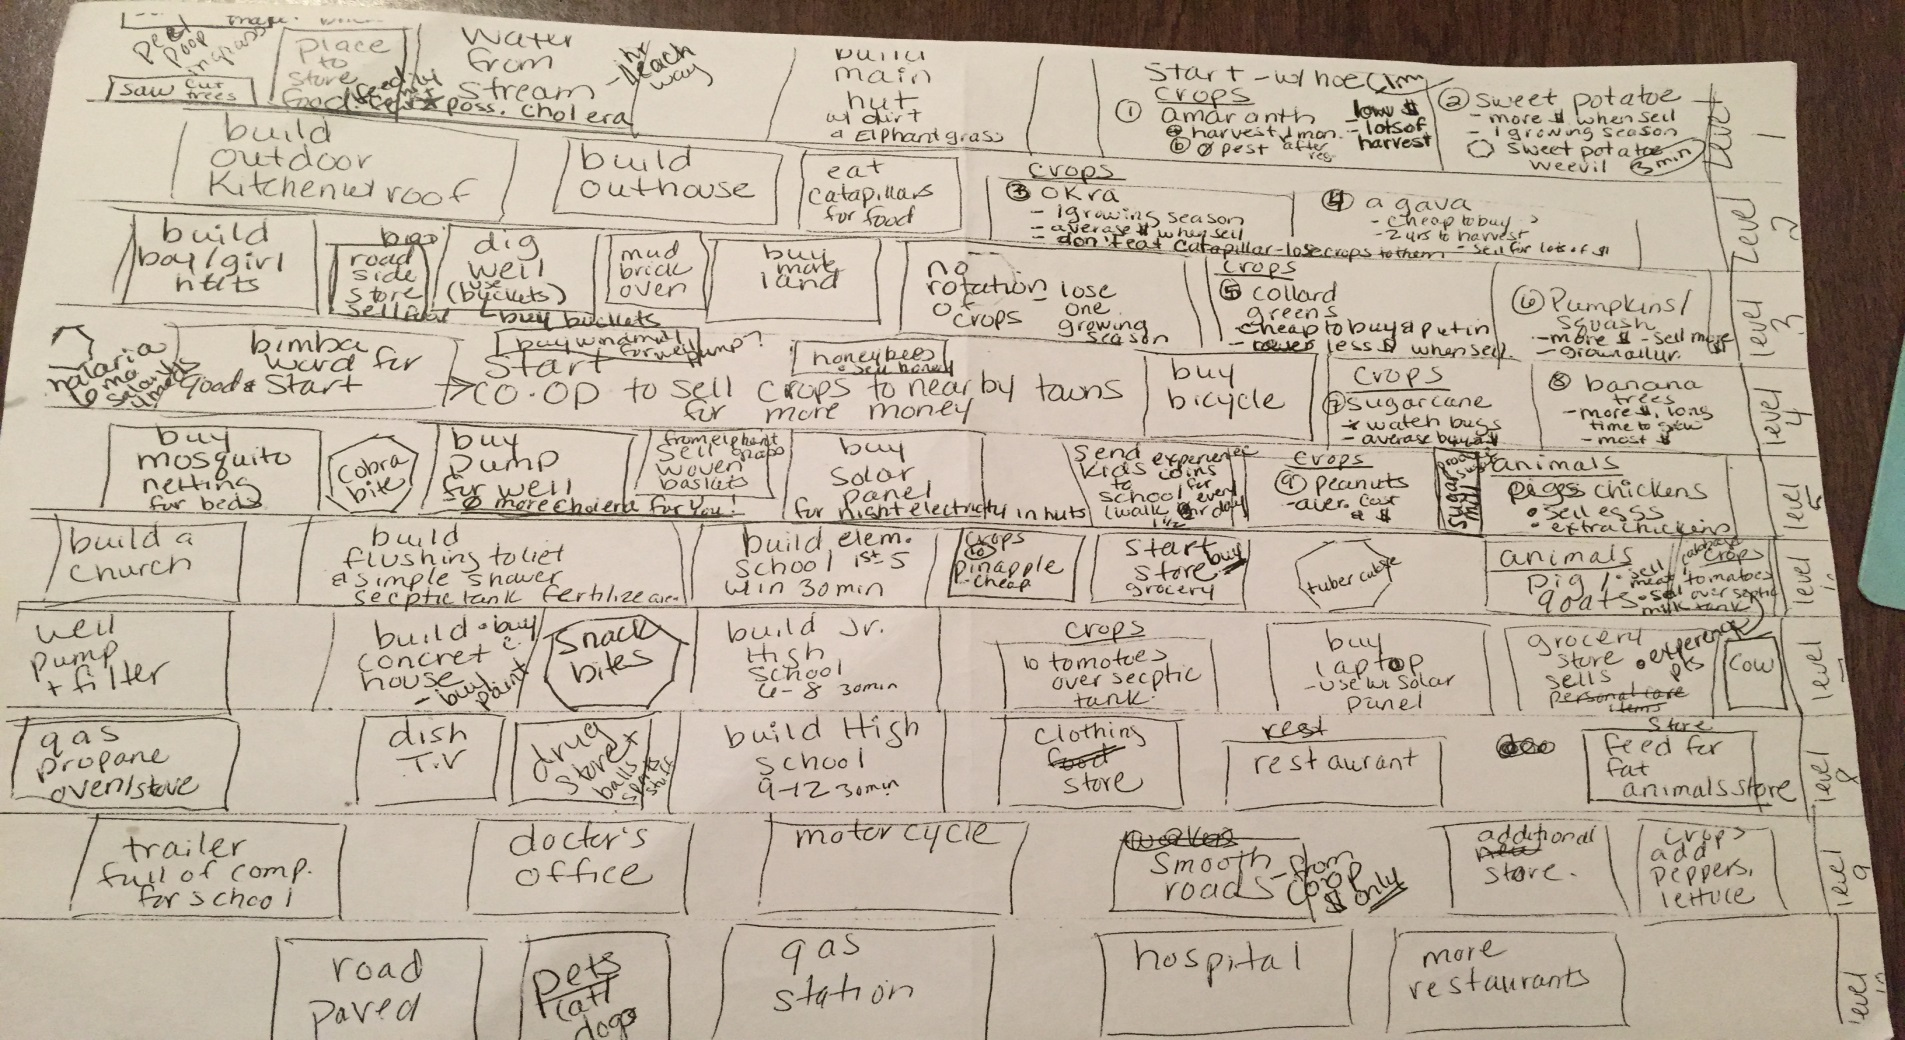 make.
pee
poop
in grass
saw cut
trees
Place
to
store
food
Water
from
Stream
- 1 hr
each
way
* poss. cholera
build
main
hut
w/ dirt
& Elephant grass
Start - w/ hoe
Crops
① amaranth
low $
- lots of
harvest
② sweet potatoe
- more $ when sell
- 1 growing season
sweet potatoe
weevil
3 min
Level
1
build
outdoor
Kitchen w/ roof
build
outhouse
eat
catapillars
for food
crops
③ okra
- 1 growing season
- average $ when sell
- don't eat catapillar - lose crops to them
④ agava
- cheap to buy
- 2 yrs to harvest
- sell for lots of $
Level
2
build
boy/girl
huts
road
side
store
dig
well
(use
buckets)
buy buckets
mud
brick
oven
buy
more
land
no
rotation
of
crops
- lose
one
growing
season
crops
⑤ collard
greens
- cheap to buy & put in
less $ when sell
⑥ Pumpkins/
squash
- more $ - sell more
$
level
3
malaria
bimba
word for
good & start
buy windmill
for well pump?
Start
CO-OP to sell crops to nearby towns
for more money
honey bees
buy
bicycle
crops
⑦ sugarcane
* watch bugs
⑧ banana
trees
- more $, long
time to grow
- most $
level
4
buy
mosquito
netting
for beds
cobra
bite
buy
pump
for well
Ø more cholera for you!
from elephant
grass
sell
woven
baskets
buy
solar
panel
for night electricity in huts
send
kids
to
school
crops
⑨ peanuts
- aver. cost
& $
sugar
mill
animals
pigs chickens
• sell eggs
• extra chickens
level
5
build a
church
build
flushing toliet
& simple shower
secptic tank fertilize area
build elem.
school 1st-5
w/in 30 min
crops
10
pinapple
- cheap
start
store
buy
grocery
tuber cutge
animals
pig /
goats
• sell
meat
crops
tomatoes
over septic
tank
level
well
pump
+ filter
build
concret
house
• buy
- buy
paint
snack
bites
build Jr.
High
school
6-8 30min
crops
10 tomatoes
over secptic
tank.
buy
laptop
- use w/ solar
panel
grocery
store
sells
personal care
items
• experience
pts
cow
level
gas
propane
oven/stove
dish
T.V
drug
store +
balls
sports
stuff
build High
school
9-12 30min
clothing
food
store
rest
restaurant
store
feed for
fat
animals store
level
8
trailer
full of comp.
for school
doctor's
office
motorcycle
smooth
roads
- from
coop
$ only
additional
new
store.
crops
add
peppers,
lettuce
level
9
road
paved
pets
cat/
dogs
gas
station
hospital
more
restaurants
level
10